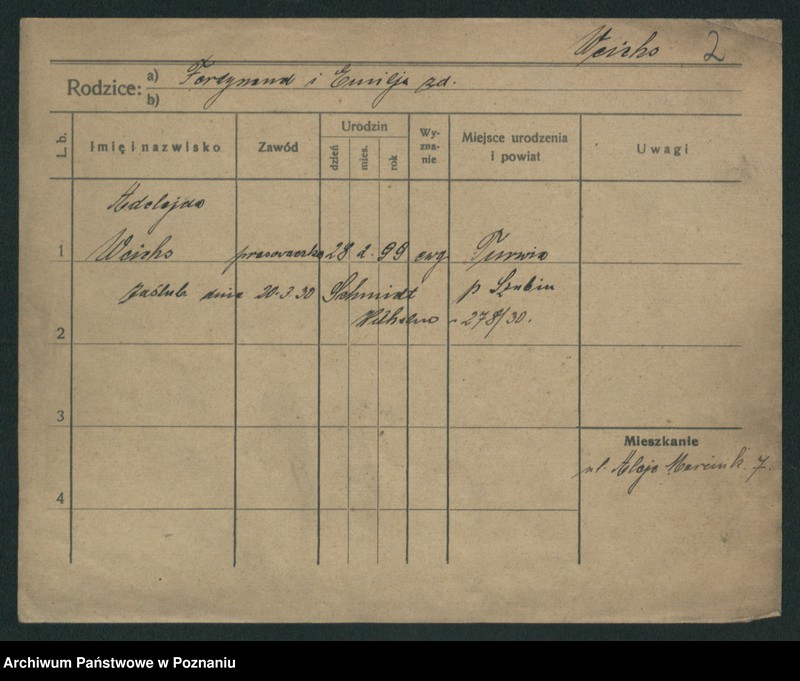 Weichs 2
Rodzice: a) Ferdynand i Emilja zd.
b)
L. b. Imię i nazwisko Zawód Urodzin dzień mies. rok Wy-zna-nie Miejsce urodzenia i powiat Uwagi
Adelajda
1 Weichs prasowaczka 28 2. 99 ewg. Turwia
zaślub. dnia 20.3.30 Schmidt p Szubin
2 Wilhelm - 278/30.
3
Mieszkanie
ul. Aleje Marcink. 7.
4
Archiwum Państwowe w Poznaniu